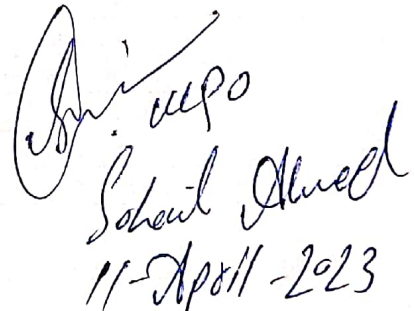 Sohail Ahmed
11-April-2023